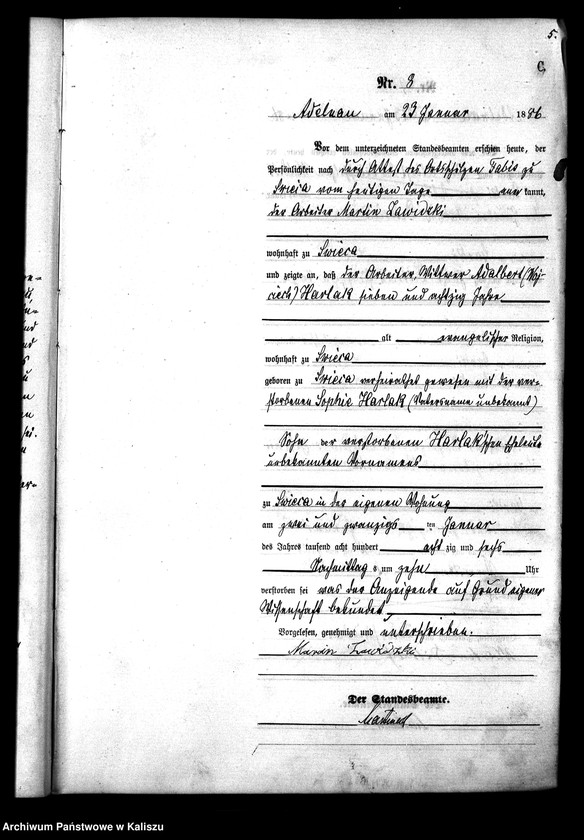 5.
C.
Nr. 8
Adelnau am 23 Januar 1886
Vor dem unterzeichneten Standesbeamten erschien heute, der
Persönlichkeit nach durch Attest des Ortsschulzen Tabis zu
Swieca vom heutigen Tage kannt,
der Arbeiter Martin Zawidzki
wohnhaft zu Swieca
und zeigte an, daß der Arbeiter, Wittwer Adalbert (Woj-
ciech) Harlak sieben und achtzig Jahre
alt evangelischer Religion,
wohnhaft zu Swieca
geboren zu Swieca verheirathet gewesen mit der ver-
storbenen Sophie Harlak (Vatersname unbekannt)
Sohn der verstorbenen Harlak'schen Eheleute
unbekannten Vornamens
zu Swieca in der eigenen Wohnung
am zwei und zwanzigsten Januar
des Jahres tausend acht hundert achtzig und sechs
Nachmittags um zehn Uhr
verstorben sei was der Anzeigende auf Grund eigener
Wissenschaft bekundet,
Vorgelesen, genehmigt und unterschrieben.
Marcin Zawidzki
Der Standesbeamte.
Archiwum Państwowe w Kaliszu